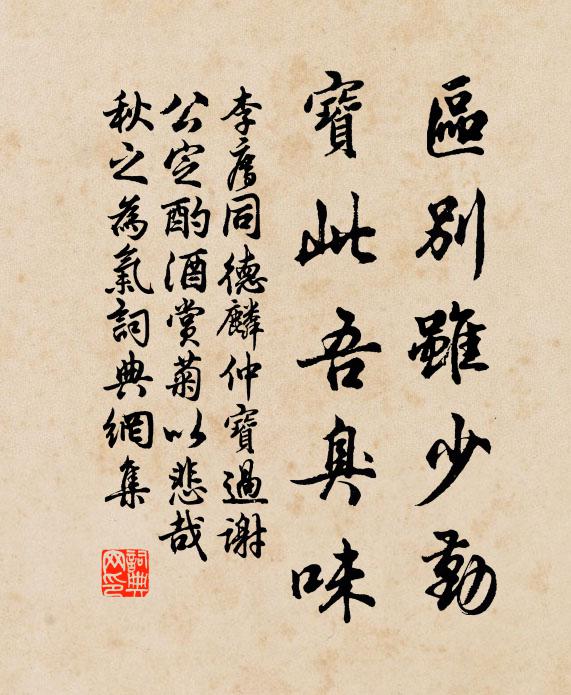 區別雖少勤
寶此吾臭味
李廌同德麟仲寶過謝
公定酌酒賞菊以悲哉
秋之為氣詞典網集
詞典
网印